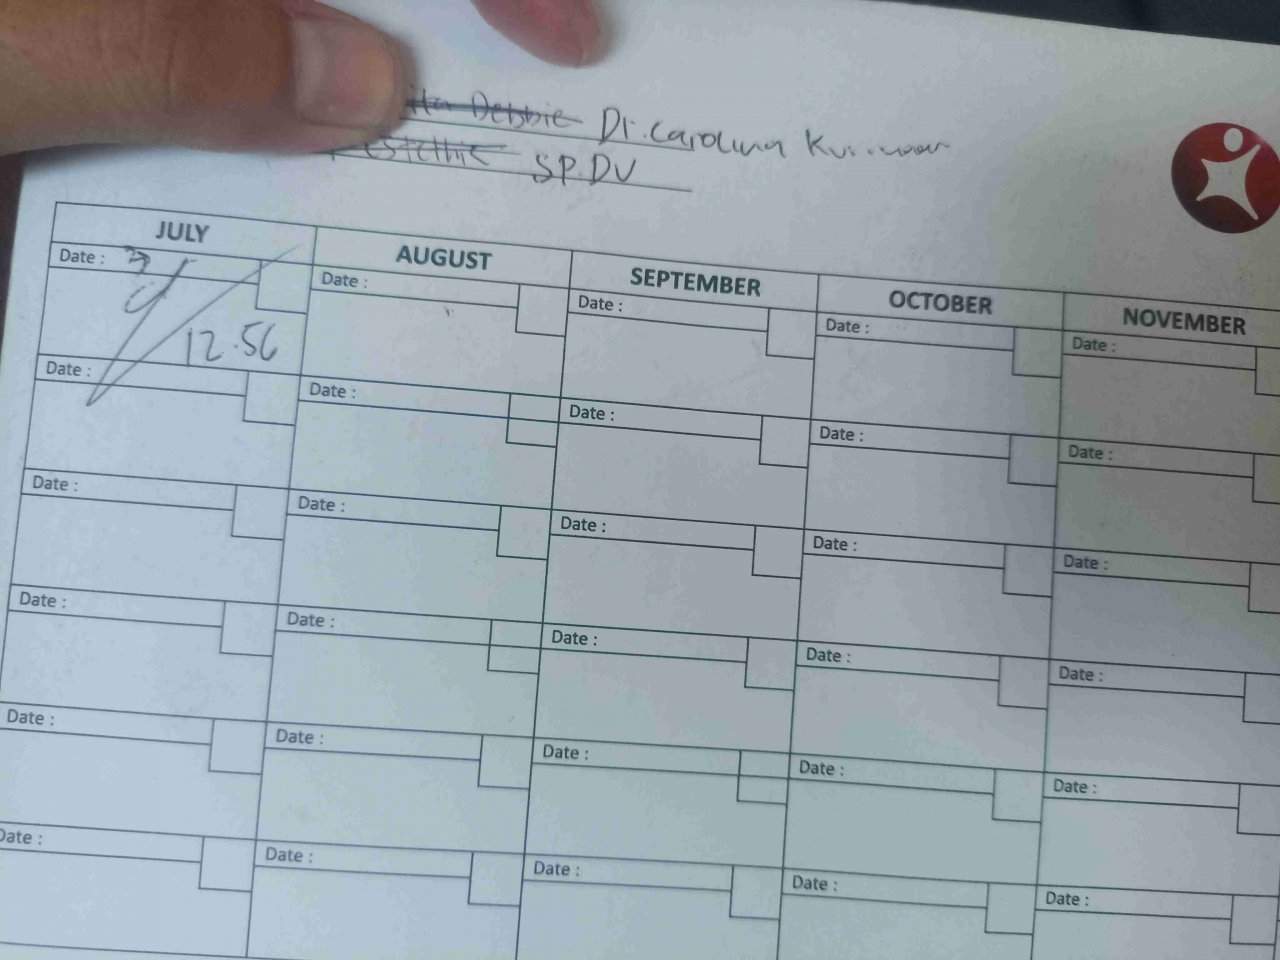 Debbie Dr. Carolina
SP.DV
JULY AUGUST SEPTEMBER OCTOBER NOVEMBER
Date : Date : Date : Date : Date :
12.56
Date : Date : Date : Date : Date :
Date : Date : Date : Date : Date :
Date : Date : Date : Date : Date :
Date : Date : Date : Date : Date :
Date : Date : Date : Date : Date :